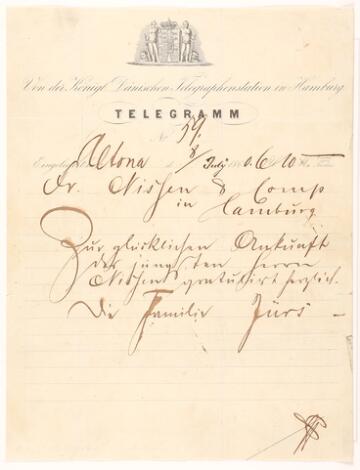 Von der Königl. Dänischen Telegraphenstation in Hamburg.
TELEGRAMM
No 59.
Altona d. 8/ July 18 6 10
Fr. Nissen & Comp
in Hamburg
Zur glücklichen Ankunft
des jüngsten Herrn
Nissen gratulirt herzlich.
Die Familie Jürs –